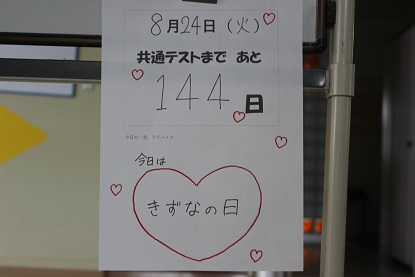 8月24日（火）
共通テストまで あと
144日
今日の一言、アドバイス
今日は
きずなの日